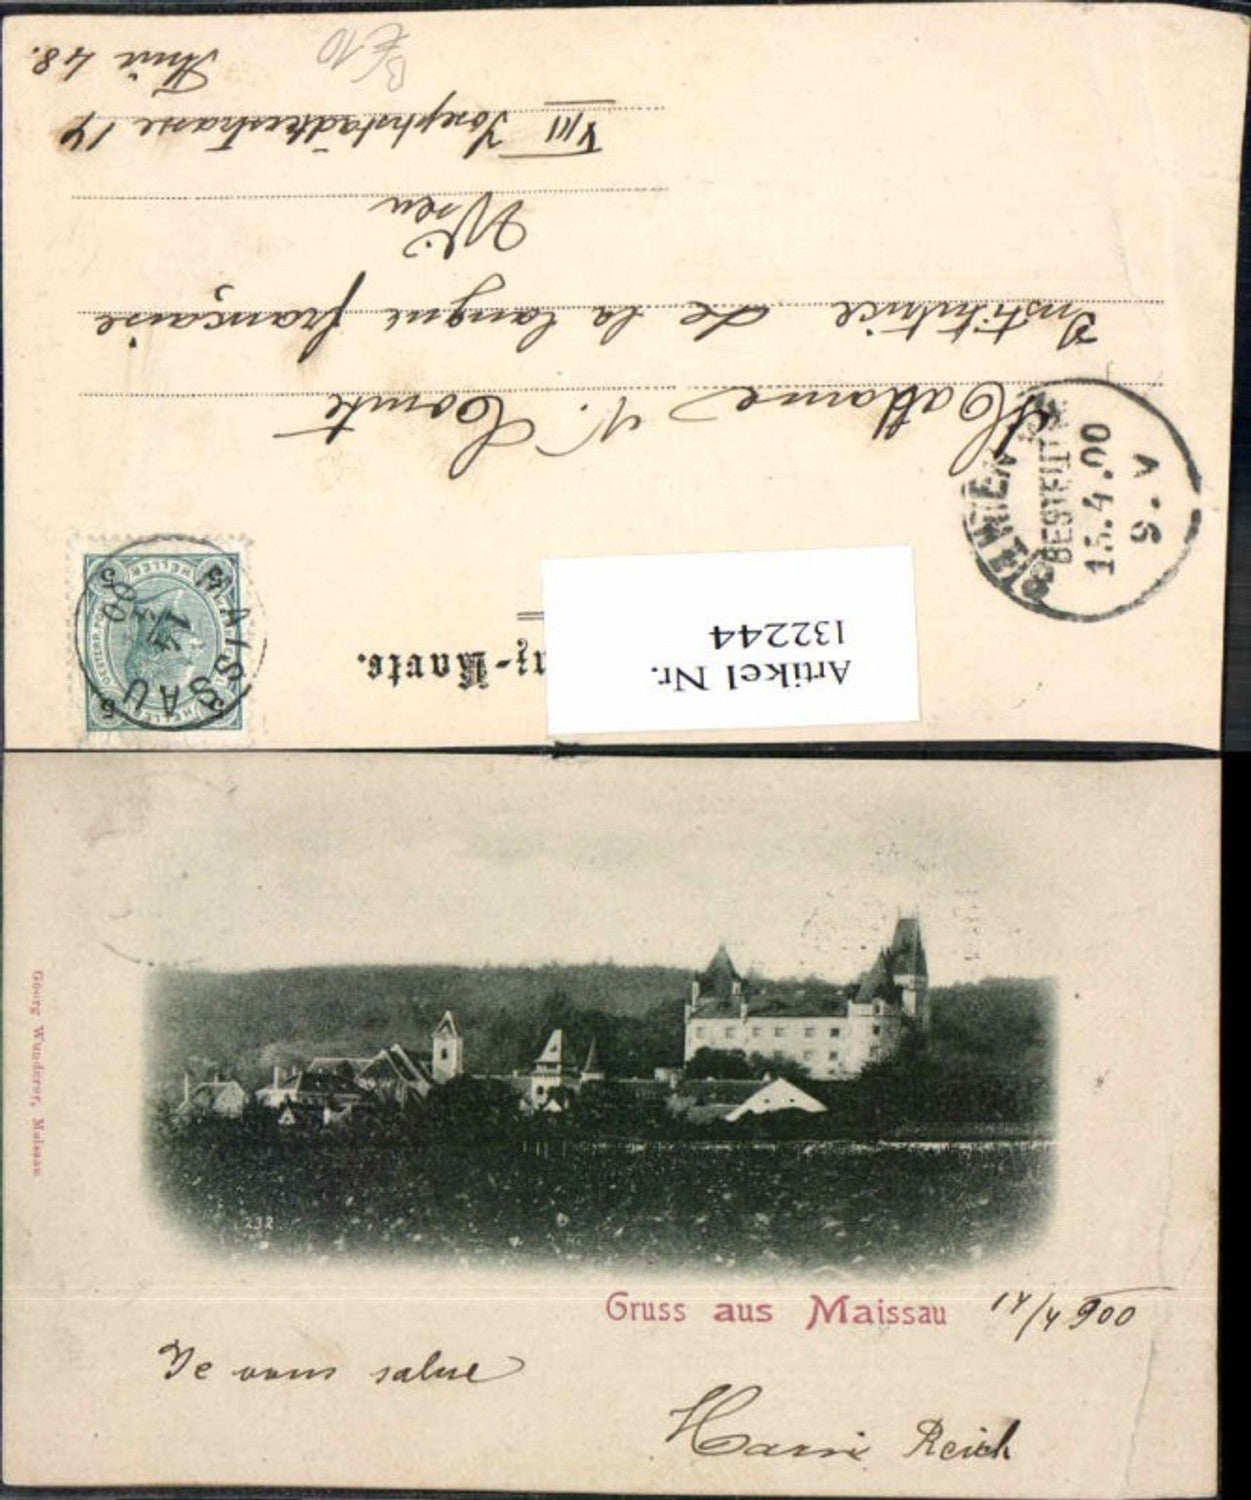 Korrespondenz-Karte.
Artikel Nr.
132244
5 HELLER 5
MAISSAU
14 4 00
WIEN
BESTELLT
15.4.00
9.V
Madame V. Comte
Institutrice de la langue française
Wien
VIII Josephstädterstrasse 14
Thür 48.
Georg Wunderer, Maissau
232
Gruss aus Maissau 14/4 900
Je vous salue
Hansi Reich